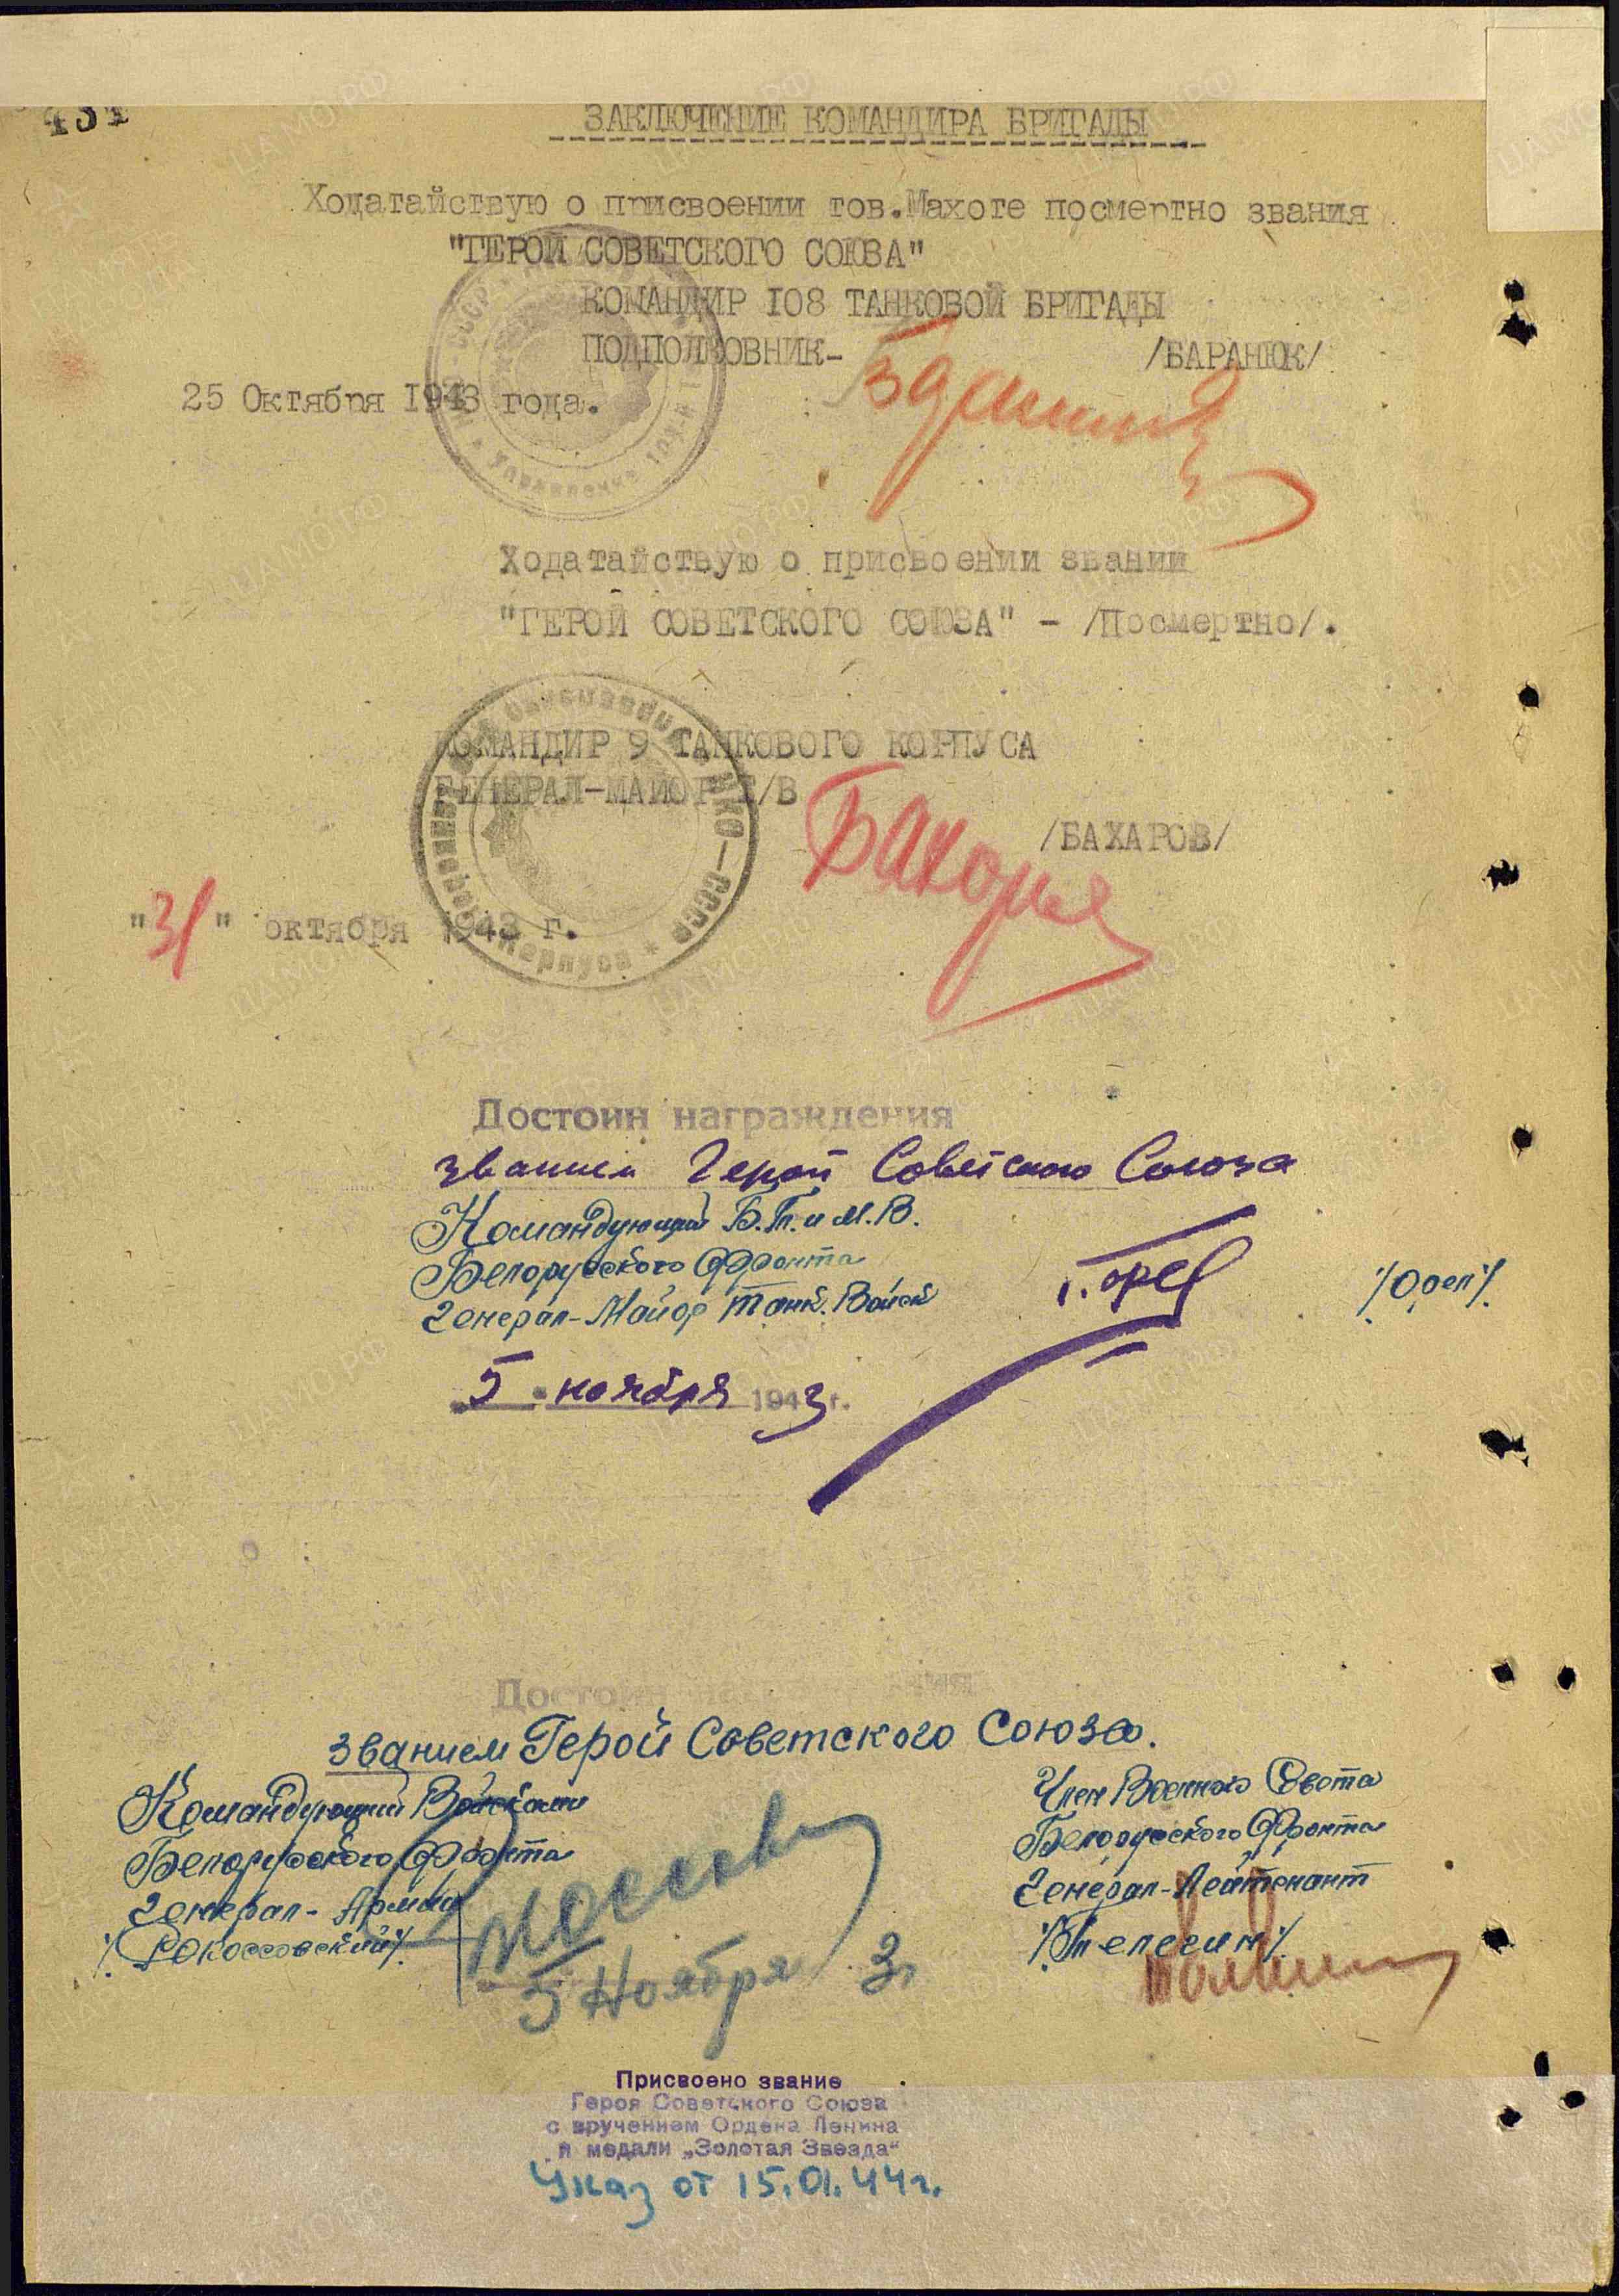 ЗАКЛЮЧЕНИЕ КОМАНДИРА БРИГАДЫ
Ходатайствую о присвоении тов.Махоте посмертно звания
"ГЕРОЙ СОВЕТСКОГО СОЮЗА"
КОМАНДИР 108 ТАНКОВОЙ БРИГАДЫ
ПОДПОЛКОВНИК- /БАРАНЮК/
25 Октября 1943 года.
Ходатайствую о присвоении звании
"ГЕРОЙ СОВЕТСКОГО СОЮЗА" - /Посмертно/.
КОМАНДИР 9 ТАНКОВОГО КОРПУСА
ГЕНЕРАЛ-МАЙОР Т/В
/БАХАРОВ/
"31" октября 1943 г.
Достоин награждения
званием Герой Советского Союза
Командующий Б.Т. и М.В.
Белорусского Фронта
Генерал-Майор Танк. Войск /Орел/.
5 ноября 1943 г.
Достоин
званием Герой Советского Союза.
Командующий Войсками
Белорусского Фронта
Генерал-Армии
/Рокоссовский/.
5 Ноября 3г
Член Военного Совета
Белорусского Фронта
Генерал-Лейтенант
/Телегин/
Присвоено звание
Героя Советского Союза
с вручением Ордена Ленина
и медали „Золотая Звезда"
Указ от 15.01.44г.